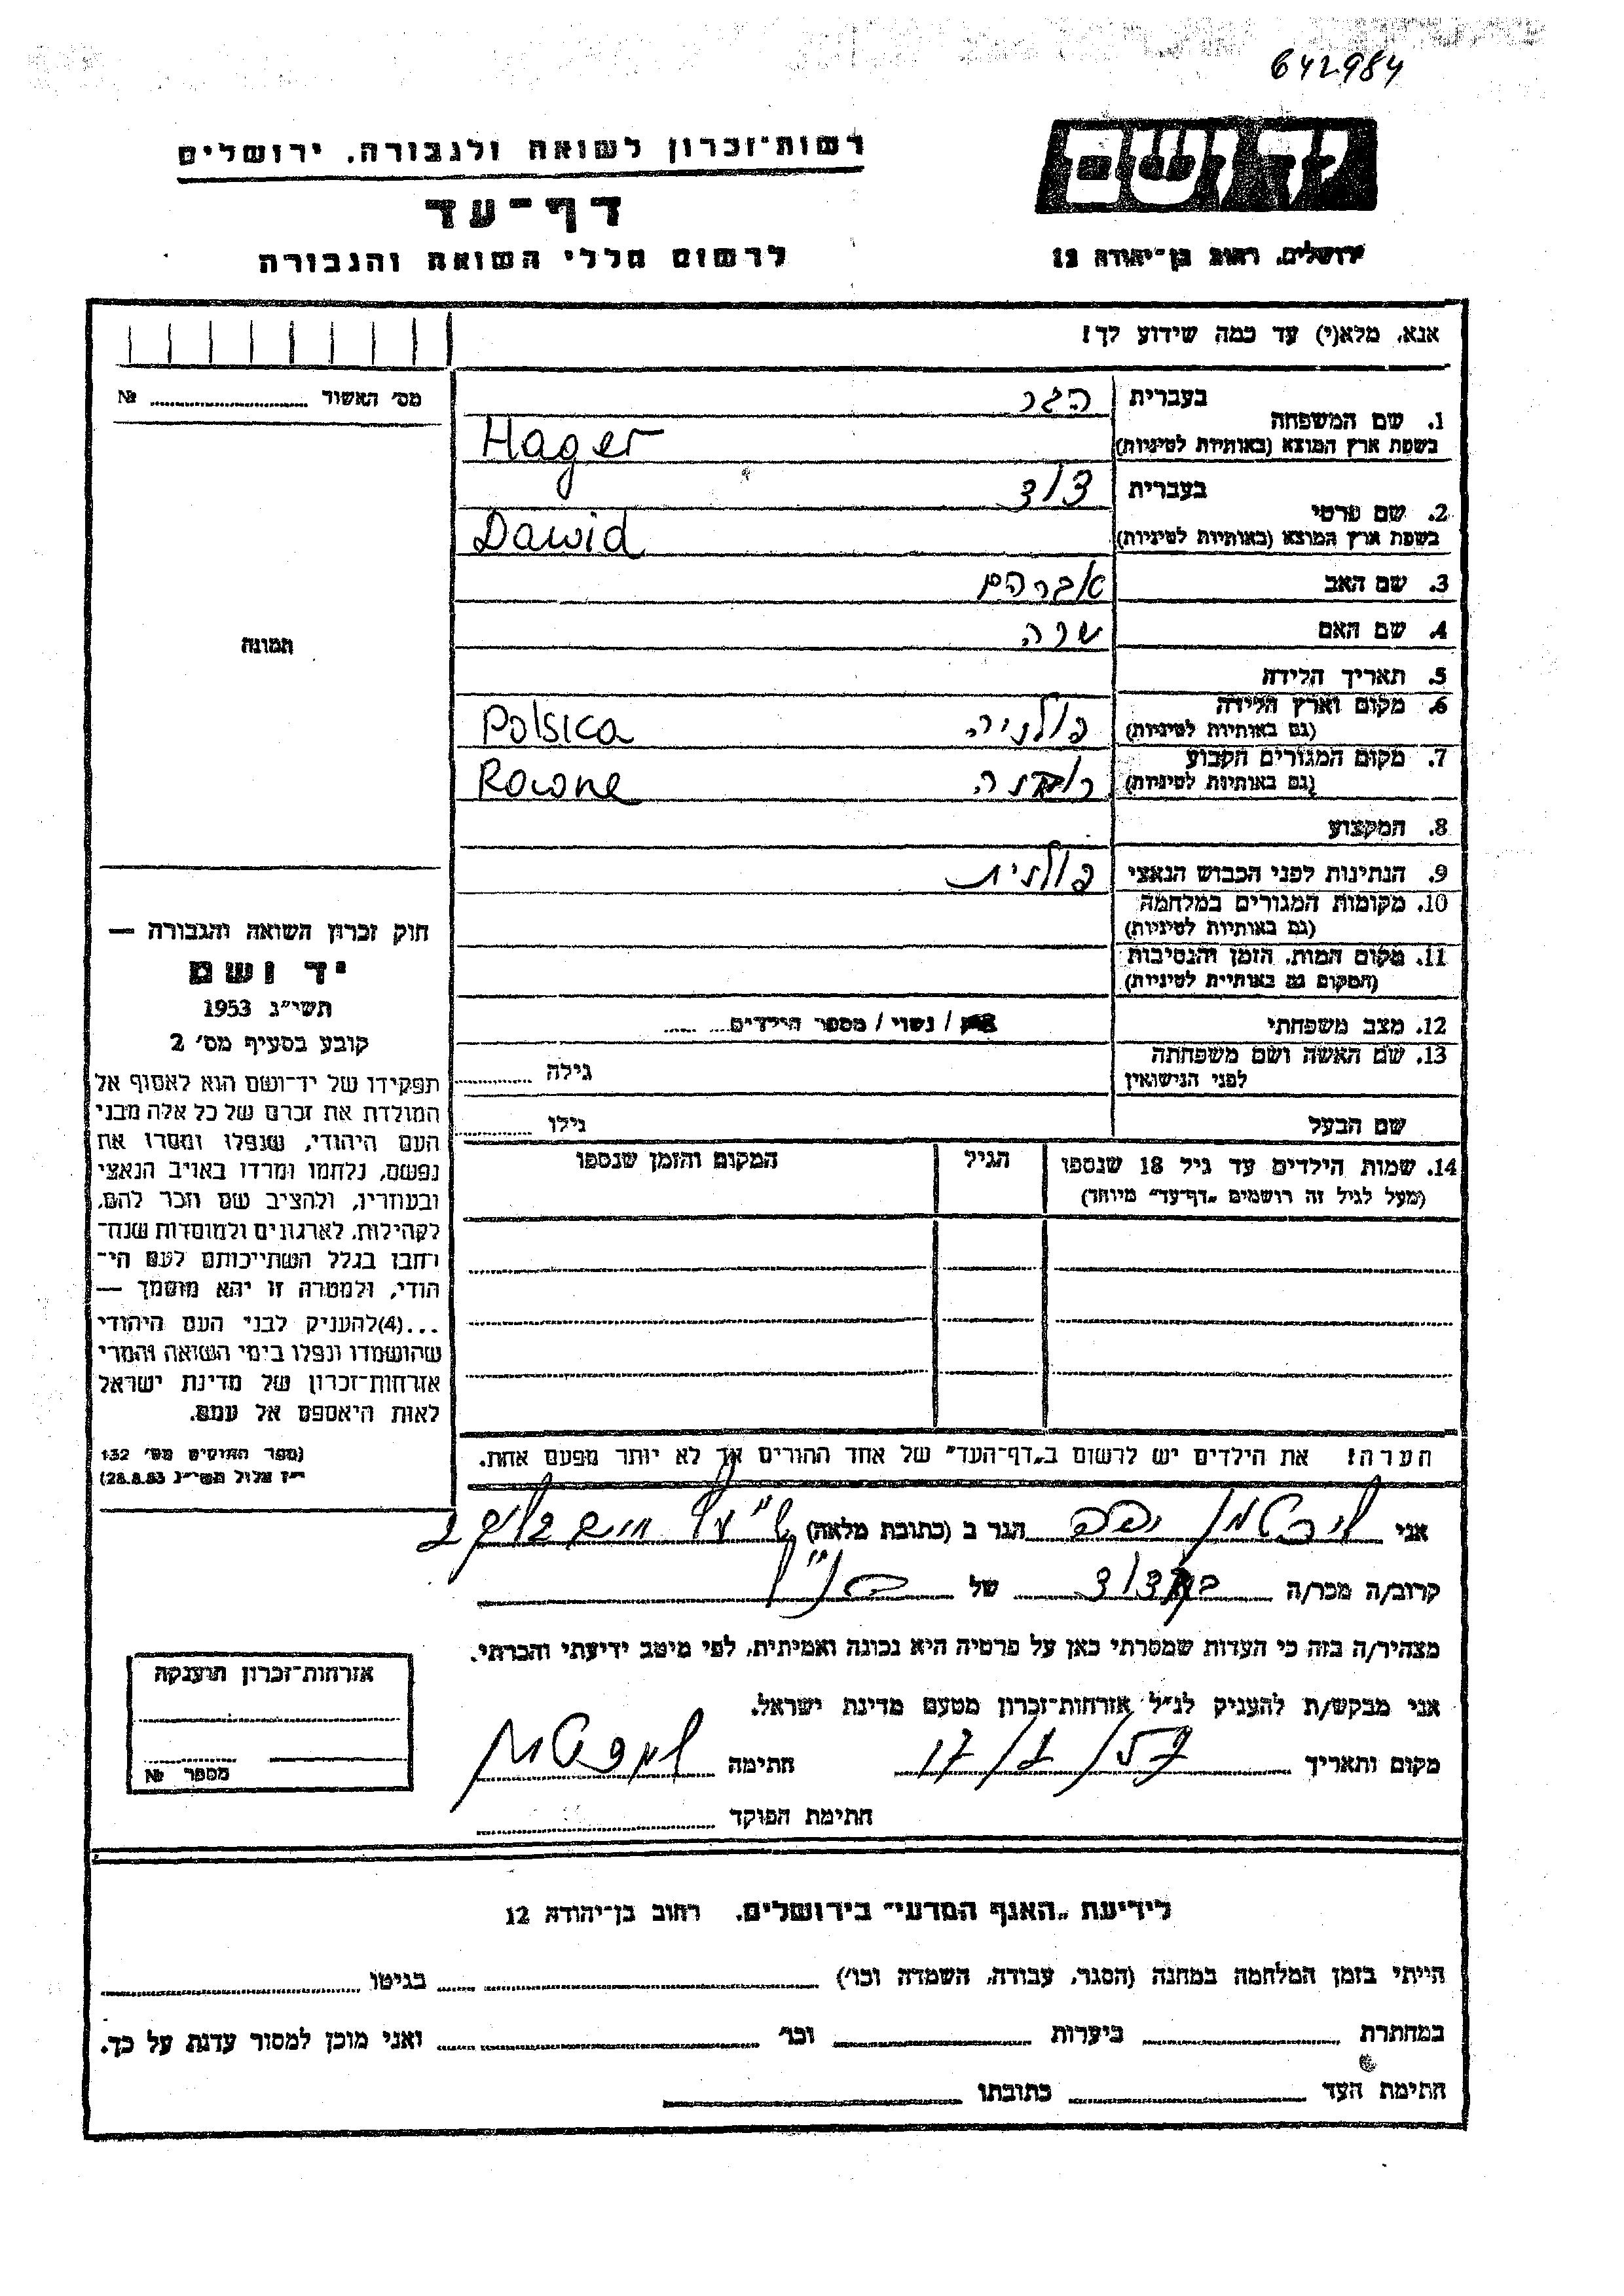 642984
רשות־זכרון לשואה ולגבורה, ירושלים
דף־עד
לרשום חללי השואה והגבורה
יד ושם
ירושלים, רחוב בן־יהודה 12
אנא, מלא(י) עד כמה שידוע לך!
מס' האשור № 
1. שם המשפחה
בעברית הגר
בשפת ארץ המוצא (באותיות לטיניות) Hager
2. שם פרטי
בעברית דוד
בשפת ארץ המוצא (באותיות לטיניות) Dawid
3. שם האב אברהם
4. שם האם שרה
תמונה
5. תאריך הלידה
6. מקום וארץ הלידה
(גם באותיות לטיניות) פולניה Polsica
7. מקום המגורים הקבוע
(גם באותיות לטיניות) רובנה Rowne
8. המקצוע
9. הנתינות לפני הכבוש הנאצי פולנית
10. מקומות המגורים במלחמה
(גם באותיות לטיניות)
11. מקום המות, הזמן והנסיבות
(המקום גם באותיות לטיניות)
12. מצב משפחתי / נשוי / מספר הילדים
13. שם האשה ושם משפחתה
לפני הנישואין גילה
שם הבעל גילו
14. שמות הילדים עד גיל 18 שנספו
(מעל לגיל זה רושמים „דף־עד" מיוחד)
הגיל
המקום והזמן שנספו
חוק זכרון השואה והגבורה —
יד ושם
תשי"ג 1953
קובע בסעיף מס' 2
תפקידו של יד־ושם הוא לאסוף אל
המולדת את זכרם של כל אלה מבני
העם היהודי, שנפלו ומסרו את
נפשם, נלחמו ומרדו באויב הנאצי
ובעוזריו, ולהציב שם וזכר להם,
לקהילות, לארגונים ולמוסדות שנח־
רחבו בגלל השתייכותם לעם הי־
הודי, ולמטרה זו יהא מוסמך —
...(4)להעניק לבני העם היהודי
שהושמדו ונפלו בימי השואה והמרי
אזרחות־זכרון של מדינת ישראל
לאות היאספם אל עמם.
(ספר החוקים מס' 132
י"ז אלול תשי"ג 28.8.53)
הערה! את הילדים יש לרשום ב„דף־העד" של אחד ההורים אך לא יותר מפעם אחת.
אני יפה הגר ב (כתובת מלאה)
קרוב/ה מכר/ה של
מצהיר/ה בזה כי העדות שמסרתי כאן על פרטיה היא נכונה ואמיתית, לפי מיטב ידיעתי והכרתי.
אני מבקש/ת להעניק לנ"ל אזרחות־זכרון מטעם מדינת ישראל.
מקום ותאריך 17/ חתימה
חתימת הפוקד
אזרחות־זכרון הוענקה
מספר №
לידיעת „האגף המדעי" בירושלים, רחוב בן־יהודה 12
הייתי בזמן המלחמה במחנה (הסגר, עבודה, השמדה וכו') בגיטו
במחתרת ביערות וכו' ואני מוכן למסור עדות על כך.
חתימת העד כתובתו